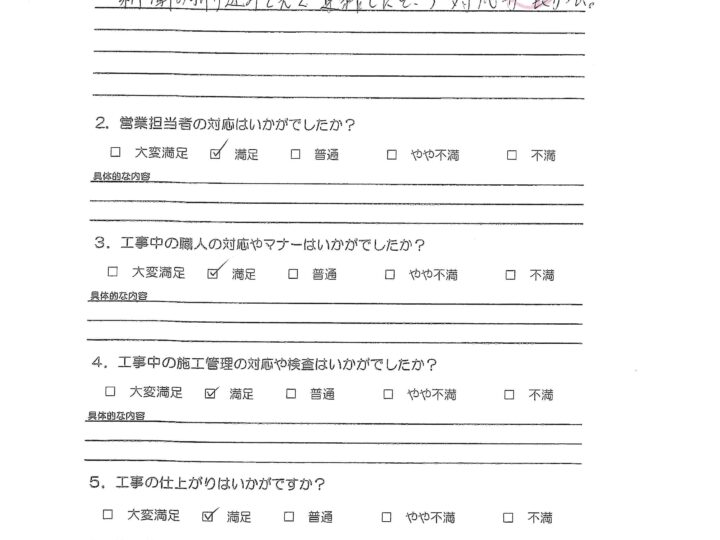 新聞の折り込みでみて
2. 営業担当者の対応はいかがでしたか?
□ 大変満足 ☑ 満足 □ 普通 □ やや不満 □ 不満
具体的な内容
3. 工事中の職人の対応やマナーはいかがでしたか?
□ 大変満足 ☑ 満足 □ 普通 □ やや不満 □ 不満
具体的な内容
4. 工事中の施工管理の対応や検査はいかがでしたか?
□ 大変満足 ☑ 満足 □ 普通 □ やや不満 □ 不満
具体的な内容
5. 工事の仕上がりはいかがですか?
□ 大変満足 ☑ 満足 □ 普通 □ やや不満 □ 不満